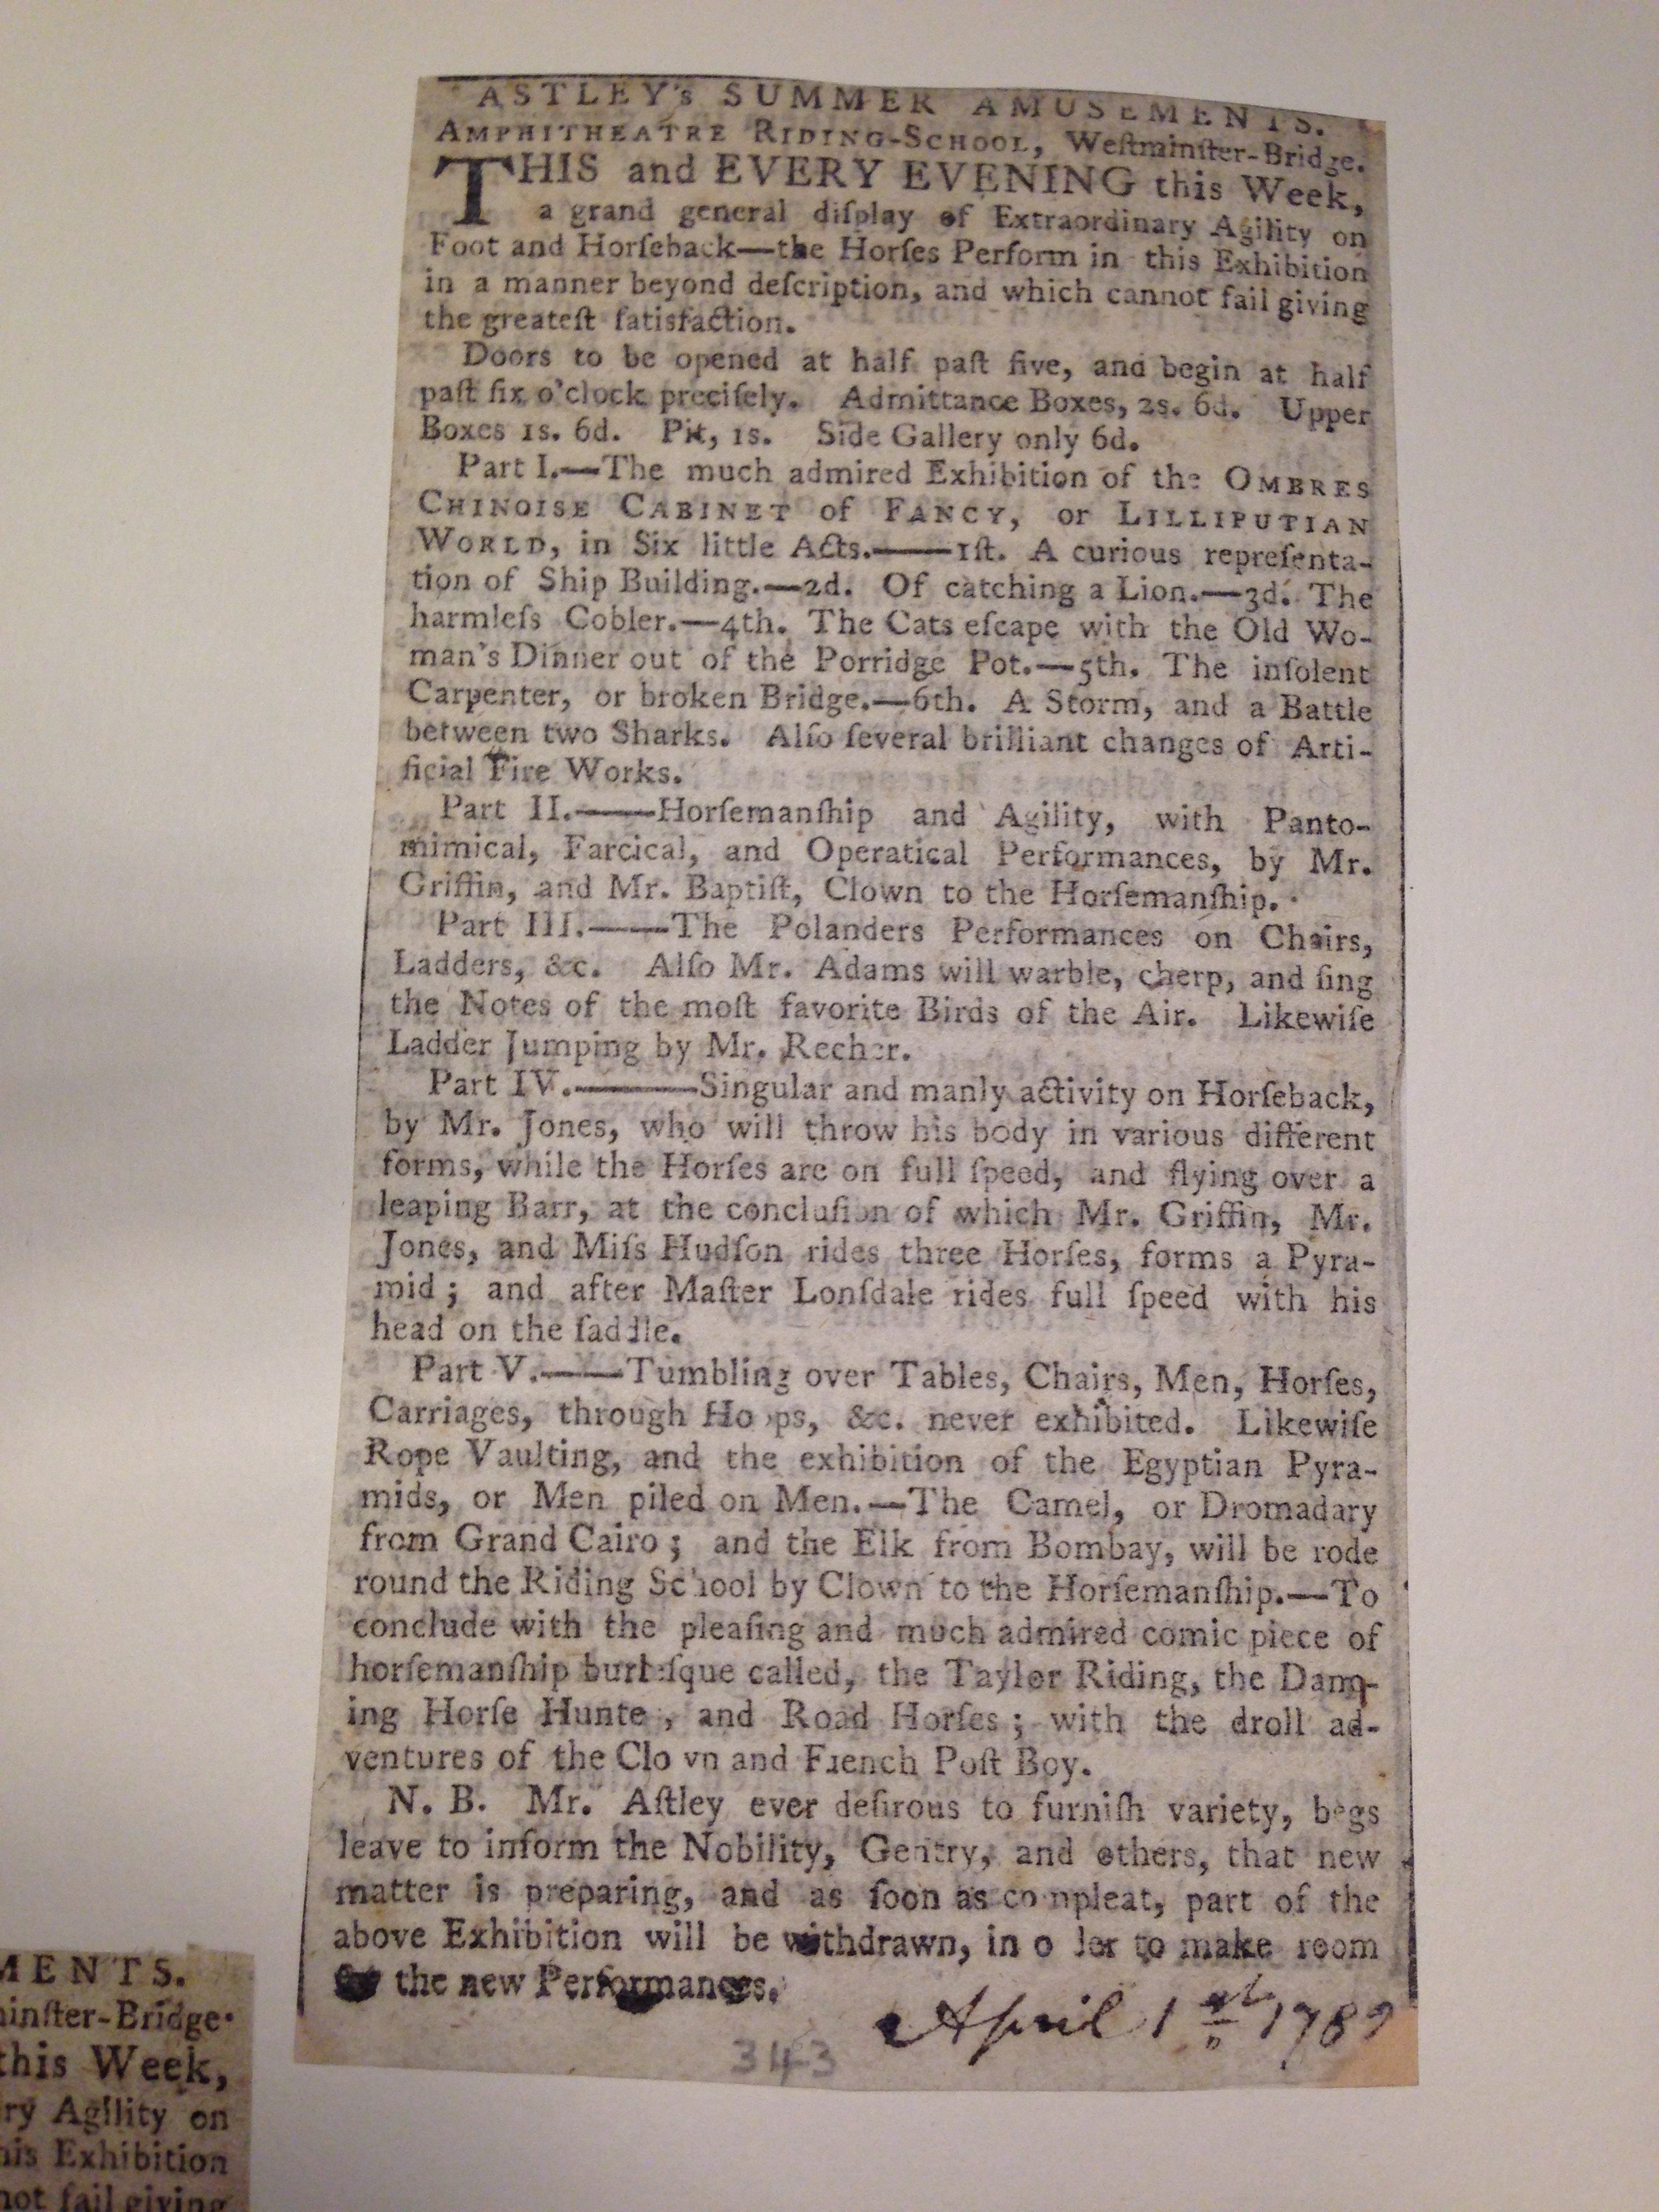 ASTLEY's SUMMER AMUSEMENTS.
AMPHITHEATRE RIDING-SCHOOL, Weſtminſter-Bridge.
THIS and EVERY EVENING this Week,
a grand general diſplay of Extraordinary Agility on
Foot and Horſeback—the Horſes Perform in this Exhibition
in a manner beyond deſcription, and which cannot fail giving
the greateſt ſatisfaction.
Doors to be opened at half paſt five, and begin at half
paſt ſix o'clock preciſely. Admittance Boxes, 2s. 6d. Upper
Boxes 1s. 6d. Pit, 1s. Side Gallery only 6d.
Part I.—The much admired Exhibition of the OMBRES
CHINOISE CABINET of FANCY, or LILLIPUTIAN
WORLD, in Six little Acts.——1ſt. A curious repreſenta-
tion of Ship Building.—2d. Of catching a Lion.—3d. The
harmleſs Cobler.—4th. The Cats eſcape with the Old Wo-
man's Dinner out of the Porridge Pot.—5th. The inſolent
Carpenter, or broken Bridge.—6th. A Storm, and a Battle
between two Sharks. Alſo ſeveral brilliant changes of Arti-
ficial Fire Works.
Part II.——Horſemanſhip and Agility, with Panto-
mimical, Farcical, and Operatical Performances, by Mr.
Griffin, and Mr. Baptiſt, Clown to the Horſemanſhip.
Part III.——The Polanders Performances on Chairs,
Ladders, &c. Alſo Mr. Adams will warble, cherp, and ſing
the Notes of the moſt favorite Birds of the Air. Likewiſe
Ladder Jumping by Mr. Recher.
Part IV.———Singular and manly activity on Horſeback,
by Mr. Jones, who will throw his body in various different
forms, while the Horſes are on full ſpeed, and flying over a
leaping Barr, at the concluſion of which Mr. Griffin, Mr.
Jones, and Miſs Hudſon rides three Horſes, forms a Pyra-
mid; and after Maſter Lonſdale rides full ſpeed with his
head on the ſaddle.
Part V.——Tumbling over Tables, Chairs, Men, Horſes,
Carriages, through Hoops, &c. never exhibited. Likewiſe
Rope Vaulting, and the exhibition of the Egyptian Pyra-
mids, or Men piled on Men.—The Camel, or Dromadary
from Grand Cairo; and the Elk from Bombay, will be rode
round the Riding School by Clown to the Horſemanſhip.—To
conclude with the pleaſing and much admired comic piece of
horſemanſhip burleſque called, the Taylor Riding, the Danc-
ing Horſe Hunte , and Road Horſes; with the droll ad-
ventures of the Clown and French Poſt Boy.
N. B. Mr. Aſtley ever deſirous to furniſh variety, begs
leave to inform the Nobility, Gentry, and others, that new
matter is preparing, and as ſoon as compleat, part of the
above Exhibition will be withdrawn, in order to make room
the new Performances.
April 1st 1789
343
MENTS.
inſter-Bridge
this Week,
ry Agility on
his Exhibition
not fail giving